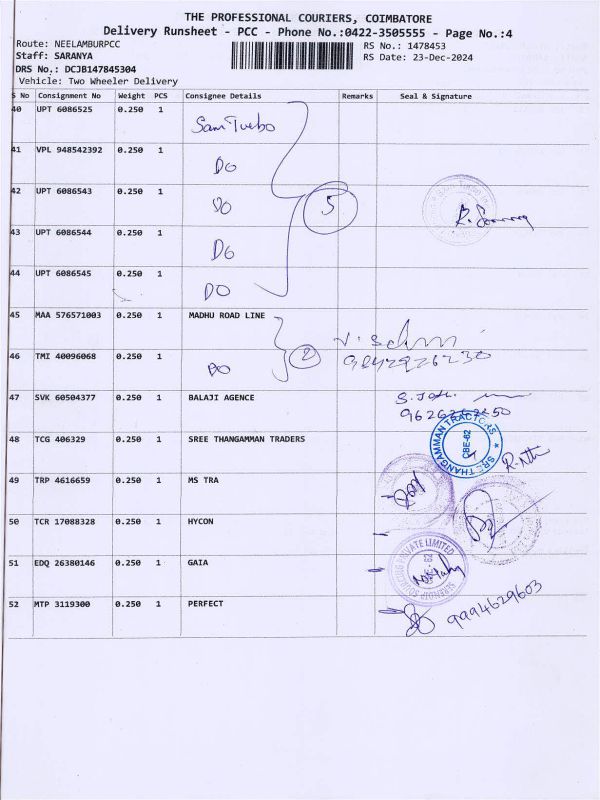 THE PROFESSIONAL COURIERS, COIMBATORE
Delivery Runsheet - PCC - Phone No.:0422-3505555 - Page No.:4
Route: NEELAMBURPCC RS No.: 1478453
Staff: SARANYA RS Date: 23-Dec-2024
DRS No.: DCJB147845304
Vehicle: Two Wheeler Delivery
S No Consignment No Weight PCS Consignee Details Remarks Seal & Signature
40 UPT 6086525 0.250 1 Sam Turbo
41 VPL 948542392 0.250 1 DO
42 UPT 6086543 0.250 1 DO 5
43 UPT 6086544 0.250 1 DO
44 UPT 6086545 0.250 1 DO
45 MAA 576571003 0.250 1 MADHU ROAD LINE
46 TMI 40096068 0.250 1 DO 2 9842926230
47 SVK 60504377 0.250 1 BALAJI AGENCE
48 TCG 406329 0.250 1 SREE THANGAMMAN TRADERS SREE THANGAMMAN TRACTORS CBE-62
49 TRP 4616659 0.250 1 MS TRA
50 TCR 17088328 0.250 1 HYCON
51 EDQ 26380146 0.250 1 GAIA PRIVATE LIMITED
52 MTP 3119300 0.250 1 PERFECT 9994629603